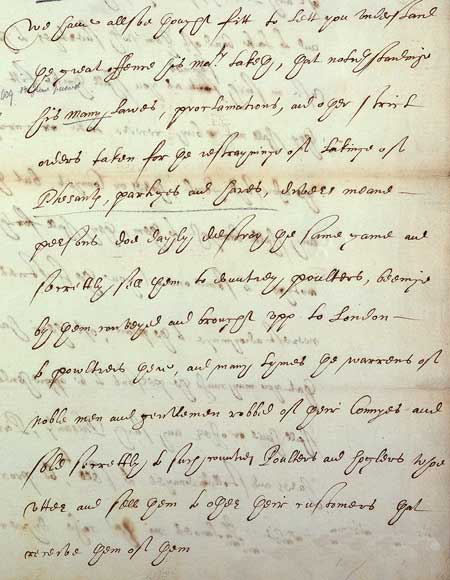 We have allsoe thought fitt to lett you understand
the great offence his ma:tie taketh, that notwthstandinge
his many lawes, proclamations, and other strict
orders taken for the restrayninge of takinge of
Phesants, partryes and hares, divers meane
persons doe dayly destroy the same game and
secrettly sell them to countrey poulters, beeinge
by them conveyed and brought upp to London
to poulters there, and many tymes the warrens of
noble men and gentlemen robbed of their Connyes and
sold secrettly to such countrey Poulters and hoglers whoe
utter and sell them to other their customers that
receive them of them